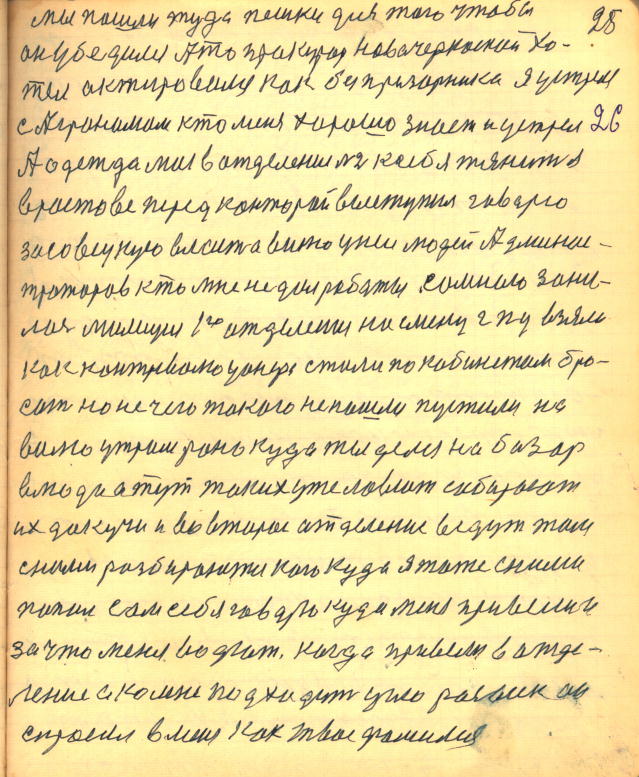 мы пошли туда пешки для того чтобы 25
он убедился А то пракурар новачеркаской хо-
тел актировали как бу призорника я устрел
с Аграномом кто меня харошо знает и устрел 26
А одежда моя в отделении №2 к себя тянит я
в ростове перед канторай выступил говарю
за совецкую власит а вит у ней людей Админис-
траторов кто мне не дал работы самною зани-
лас милиция 1го отделения на смену г п у взяли
как контр стали по кабинетам бро-
сат но не чего такого не нашли пустили на
утрам рано куда ты делся на базар
а тут таких уже ловлят сабирают
их до кучи и во второе атделение ведут там
сними разбираются кого куда Я тоже сними
попал Сам себя говарю куда меня привели и
за что меня водят. когда привели в атде-
ление ко мне подходит он
спросил в меня как твае фамилия